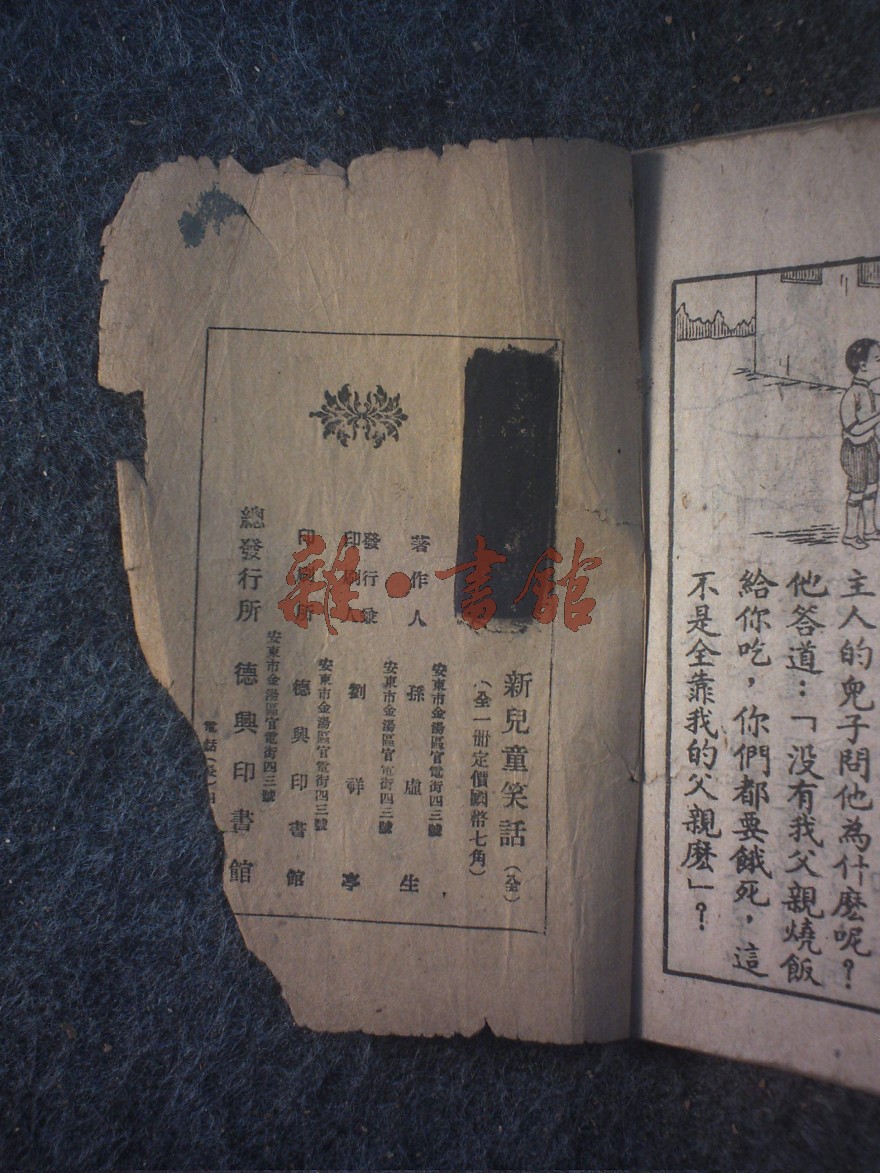 主人的兒子問他為什麽呢？
他答道：「没有我父親燒飯
給你吃，你們都要餓死，這
不是全靠我的父親麽」？
新兒童笑話（全）
（全一册定價國幣七角）
著作人 孫虛生
安東市金湯區官電街四三號
發行兼
印刷人 劉祥亭
安東市金湯區官電街四三號
印刷所 德興印書館
安東市金湯區官電街四三號
總發行所 德興印書館
安東市金湯區官電街四三號
電話（長）
雜·書館